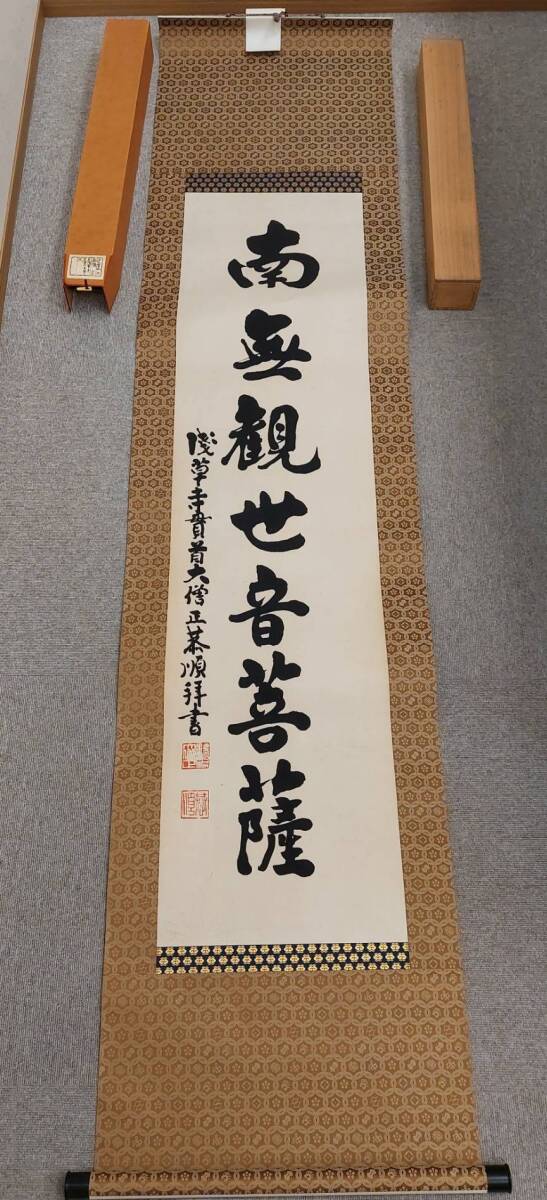 南無観世音菩薩
浅草寺貫首大僧正恭順拝書